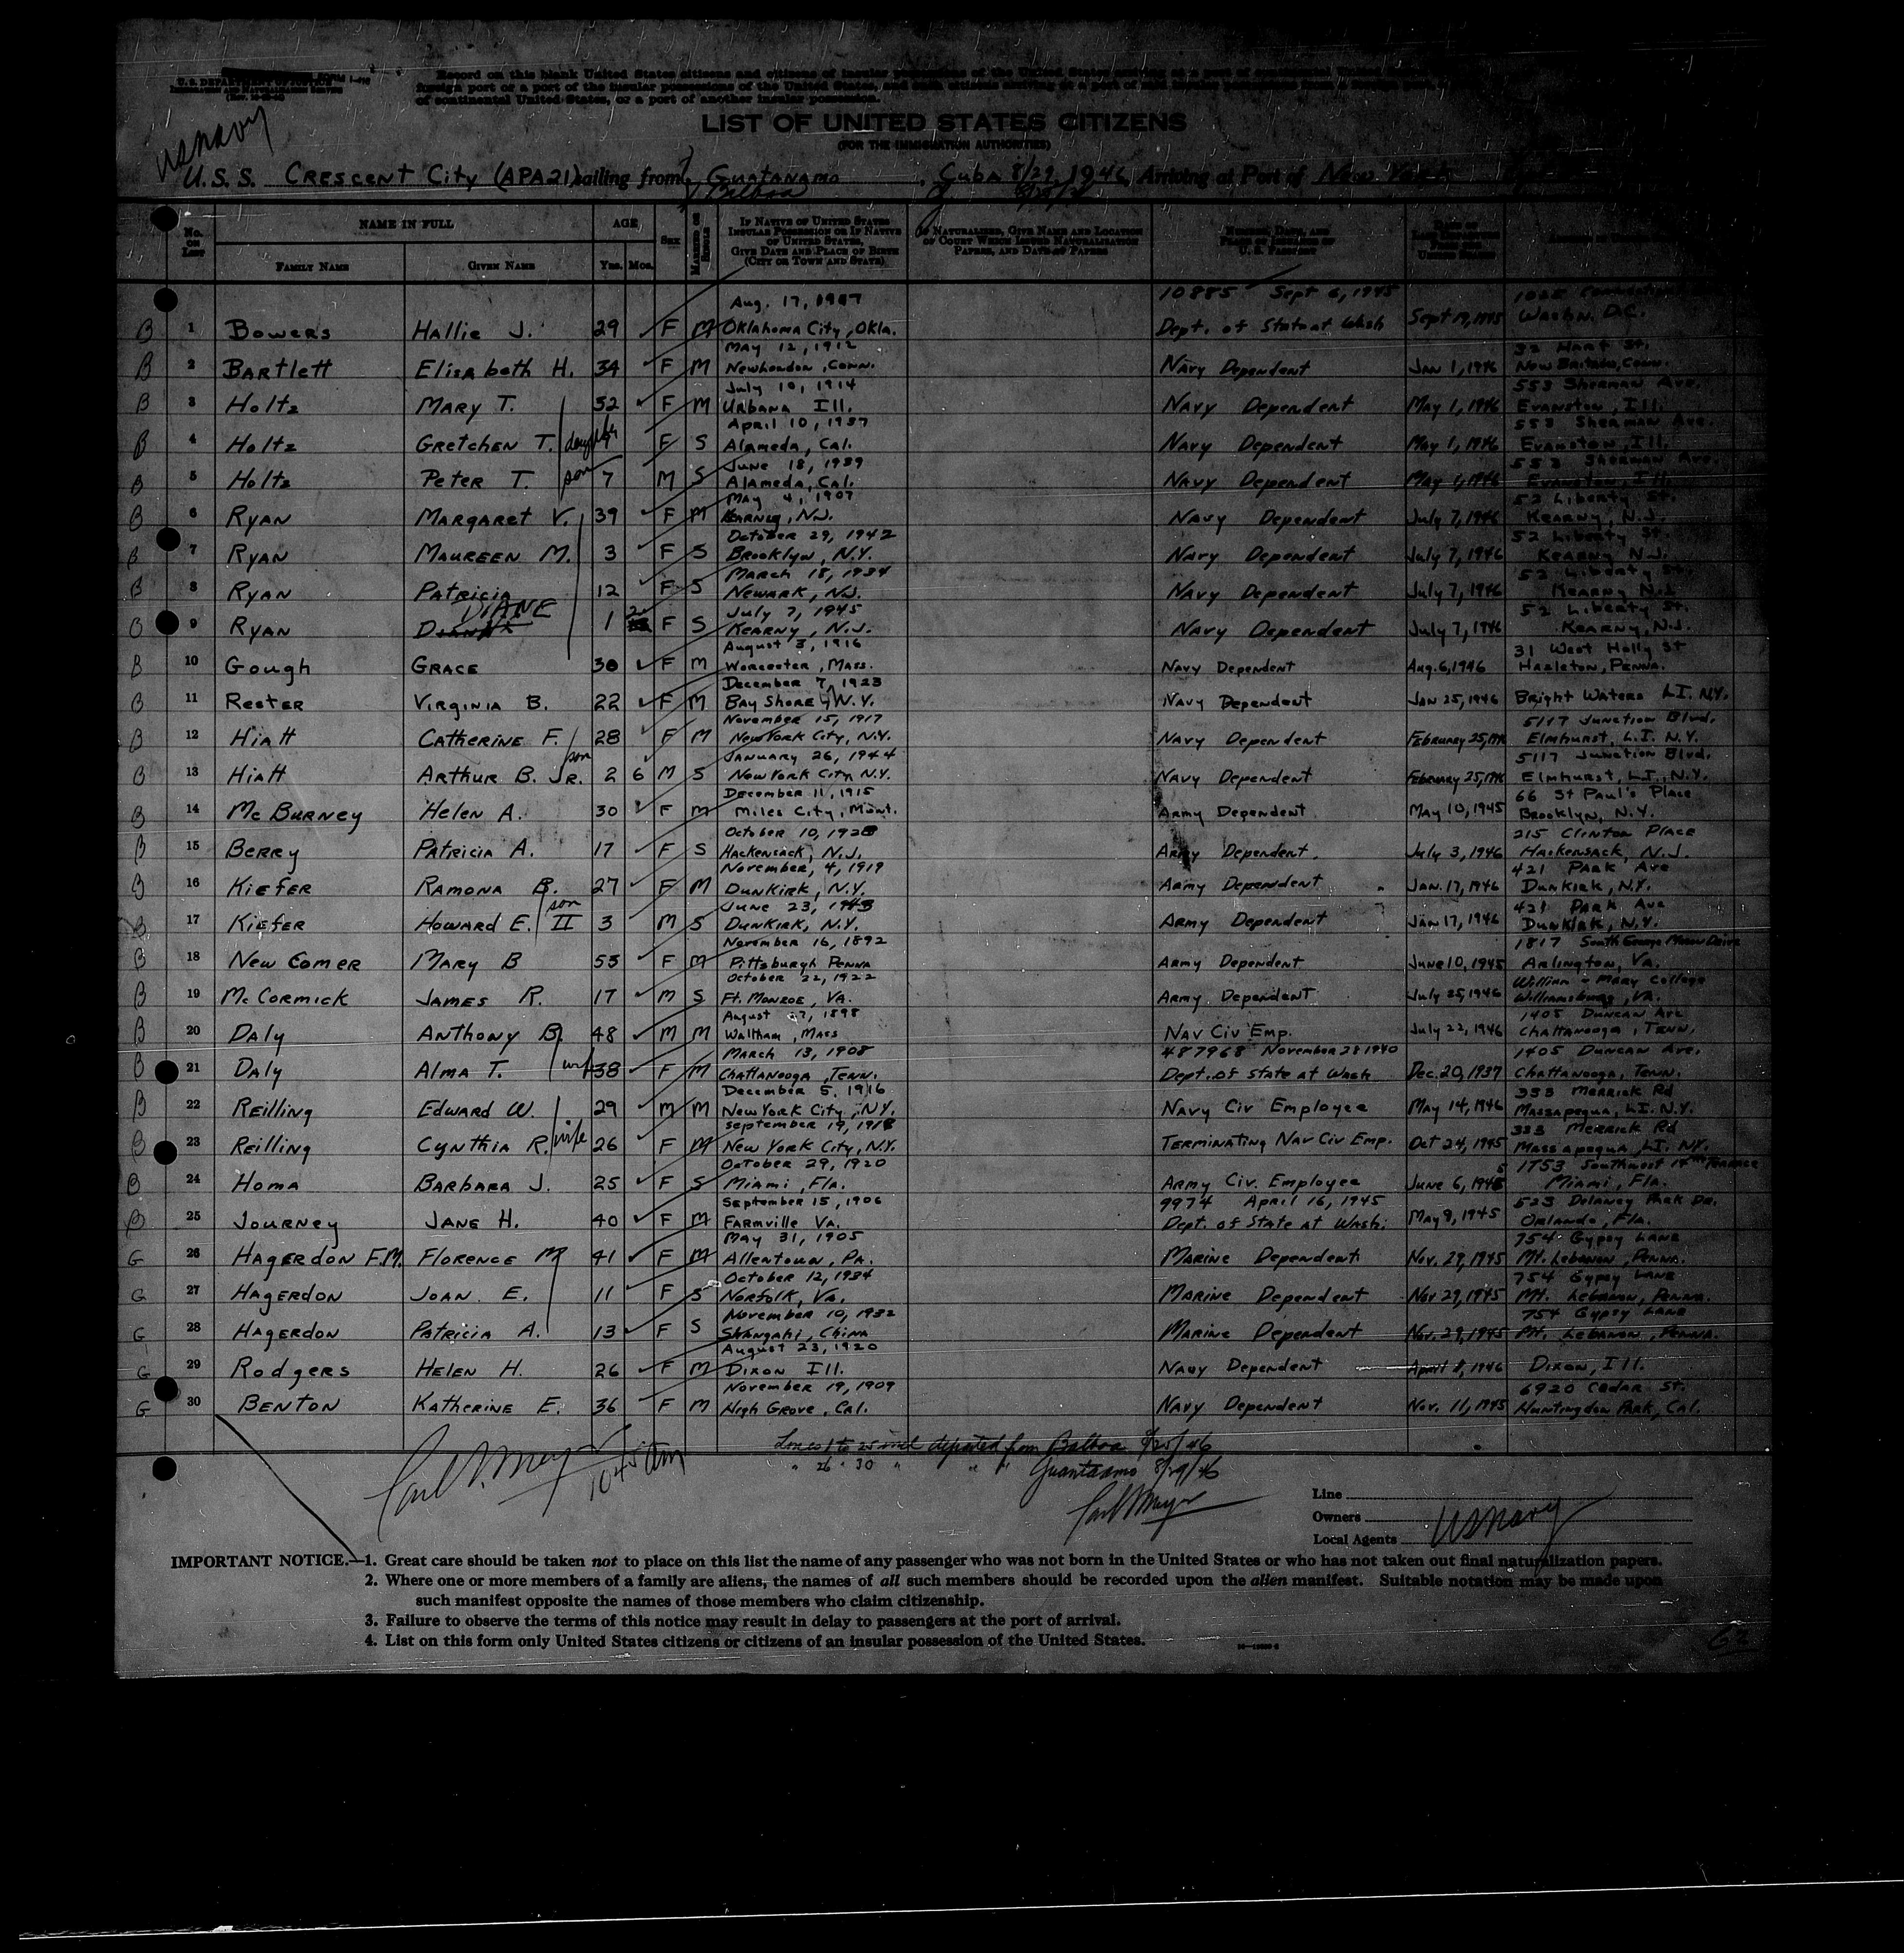 U. S. DEPARTMENT OF JUSTICE FORM I-416
IMMIGRATION AND NATURALIZATION SERVICE
Record on this blank United States citizens and citizens of insular possessions of the United States
foreign port or a port of the insular possessions of the United States, and such citizens arriving at a port of
of continental United States, or a port of another insular possession.
usnavy
LIST OF UNITED STATES CITIZENS
(FOR THE IMMIGRATION AUTHORITIES)
U.S.S. Crescent City (APA21) sailing from Guatanamo, Cuba 8/29, 1946, Arriving at Port of New York
Balboa
No. on List NAME IN FULL AGE Sex Married or Single If Native of United States Insular Possession or if Native of United States, Give Date and Place of Birth (City or Town and State) If Naturalized, Give Name and Location of Court Which Issued Naturalization Papers, and Date of Papers
Family Name Given Name Yrs. Mos.
Aug. 17, 1917 10885 Sept 6, 1945
B 1 Bowers Hallie J. 29 F M Oklahoma City, Okla. Dept. of State at Wash Sept 19, 1945 Washn. D.C.
May 12, 1912 32 Hart St.
B 2 Bartlett Elisabeth H. 34 F M New London, Conn. Navy Dependent Jan 1, 1946 New Britain, Conn.
July 10, 1914 553 Sherman Ave.
B 3 Holtz Mary T. 32 F M Urbana Ill. Navy Dependent May 1, 1946 Evanston, Ill.
April 10, 1937 553 Sherman Ave.
B 4 Holtz Gretchen T. daughter F S Alameda, Cal. Navy Dependent May 1, 1946 Evanston, Ill.
June 18, 1939 553 Sherman Ave.
B 5 Holtz Peter T. son 7 M S Alameda, Cal. Navy Dependent May 1, 1946 Evanston, Ill.
May 4, 1907 52 Liberty St.
B 6 Ryan Margaret V. 39 F M Kearny, N.J. Navy Dependent July 7, 1946 Kearny, N.J.
October 29, 1942 52 Liberty St.
B 7 Ryan Maureen M. 3 F S Brooklyn, N.Y. Navy Dependent July 7, 1946 Kearny N.J.
March 18, 1934 52 Liberty St.
B 8 Ryan Patricia 12 F S Newark, N.J. Navy Dependent July 7, 1946 Kearny N.J.
DIANE July 7, 1945 52 Liberty St.
B 9 Ryan 1 2 F S Kearny, N.J. Navy Dependent July 7, 1946 Kearny, N.J.
August 3, 1916 31 West Holly St
B 10 Gough Grace 30 F M Worcester, Mass. Navy Dependent Aug. 6, 1946 Hazleton, Penna.
December 7, 1923
B 11 Rester Virginia B. 22 F M Bay Shore, N.Y. Navy Dependent Jan 25, 1946 Bright Waters L.I. N.Y.
November 15, 1917 5117 Junction Blvd.
B 12 Hiatt Catherine F. 28 F M New York City, N.Y. Navy Dependent February 25, 1946 Elmhurst, L.I. N.Y.
son January 26, 1944 5117 Junction Blvd.
B 13 Hiatt Arthur B. Jr. 2 6 M S New York City N.Y. Navy Dependent February 25, 1946 Elmhurst, L.I., N.Y.
December 11, 1915 66 St Paul's Place
B 14 McBurney Helen A. 30 F M Miles City, Mont. Army Dependent May 10, 1945 Brooklyn, N.Y.
October 10, 1928 215 Clinton Place
B 15 Berry Patricia A. 17 F S Hackensack, N.J. Army Dependent. July 3, 1946 Hackensack, N.J.
November, 4, 1919 421 Park Ave
B 16 Kiefer Ramona B. 27 F M Dunkirk, N.Y. Army Dependent Jan. 17, 1946 Dunkirk, N.Y.
son June 23, 1943 421 Park Ave
B 17 Kiefer Howard E. II 3 M S Dunkirk, N.Y. Army Dependent Jan 17, 1946 Dunkirk, N.Y.
November 16, 1892 1817 South George Mason Drive
B 18 New Comer Mary B 53 F M Pittsburgh Penna Army Dependent June 10, 1945 Arlington, Va.
October 22, 1922 William - Mary College
B 19 McCormick James R. 17 M S Ft. Monroe, Va. Army Dependent July 25, 1946 Williamsburg, Va.
August 27, 1898 1405 Duncan Ave
B 20 Daly Anthony B. 48 M M Waltham, Mass Nav Civ Emp. July 22, 1946 Chattanooga, Tenn.
March 13, 1908 487968 November 28 1940 1405 Duncan Ave.
B 21 Daly Alma T. wf 38 F M Chattanooga, Tenn. Dept. of State at Wash Dec. 20, 1937 Chattanooga, Tenn.
December 5, 1916 333 Merrick Rd
B 22 Reilling Edward W. 29 M M New York City, N.Y. Navy Civ Employee May 14, 1946 Massapequa, L.I. N.Y.
September 19, 1918 333 Merrick Rd
B 23 Reilling Cynthia R. wife 26 F M New York City, N.Y. Terminating Nav Civ Emp. Oct 24, 1945 Massapequa L.I. N.Y.
October 29, 1920 1753 Southwest 14th Terrace
B 24 Homa Barbara J. 25 F S Miami, Fla. Army Civ. Employee June 6, 1945 Miami, Fla.
September 15, 1906 9974 April 16, 1945 523 Delaney Park Dr.
B 25 Journey Jane H. 40 F M Farmville Va. Dept. of State at Wash. May 9, 1945 Orlando, Fla.
May 31, 1905 754 Gypsy Lane
G 26 Hagerdon F.M. Florence M 41 F M Allentown, Pa. Marine Dependent Nov. 29, 1945 Mt. Lebanon, Penna.
October 12, 1934 754 Gypsy Lane
G 27 Hagerdon Joan E. 11 F S Norfolk, Va. Marine Dependent Nov 29, 1945 Mt. Lebanon, Penna.
November 10, 1932 754 Gypsy Lane
G 28 Hagerdon Patricia A. 13 F S Shangahi, China Marine Dependent Nov. 29, 1945 Mt. Lebanon, Penna.
August 23, 1920
G 29 Rodgers Helen H. 26 F M Dixon Ill. Navy Dependent April 8, 1946 Dixon, Ill.
November 19, 1909 6920 Cedar St.
G 30 Benton Katherine E. 36 F M High Grove, Cal. Navy Dependent Nov. 11, 1945 Huntingdon Park, Cal.
Lines 1 to 25 incl departed from Balboa 8/25/46
" 26 " 30 " " " Guantanamo 8/29/46
10 45 am
Line
Owners
Local Agents usnavy
IMPORTANT NOTICE.—1. Great care should be taken not to place on this list the name of any passenger who was not born in the United States or who has not taken out final naturalization papers.
2. Where one or more members of a family are aliens, the names of all such members should be recorded upon the alien manifest. Suitable notation may be made upon
such manifest opposite the names of those members who claim citizenship.
3. Failure to observe the terms of this notice may result in delay to passengers at the port of arrival.
4. List on this form only United States citizens or citizens of an insular possession of the United States.